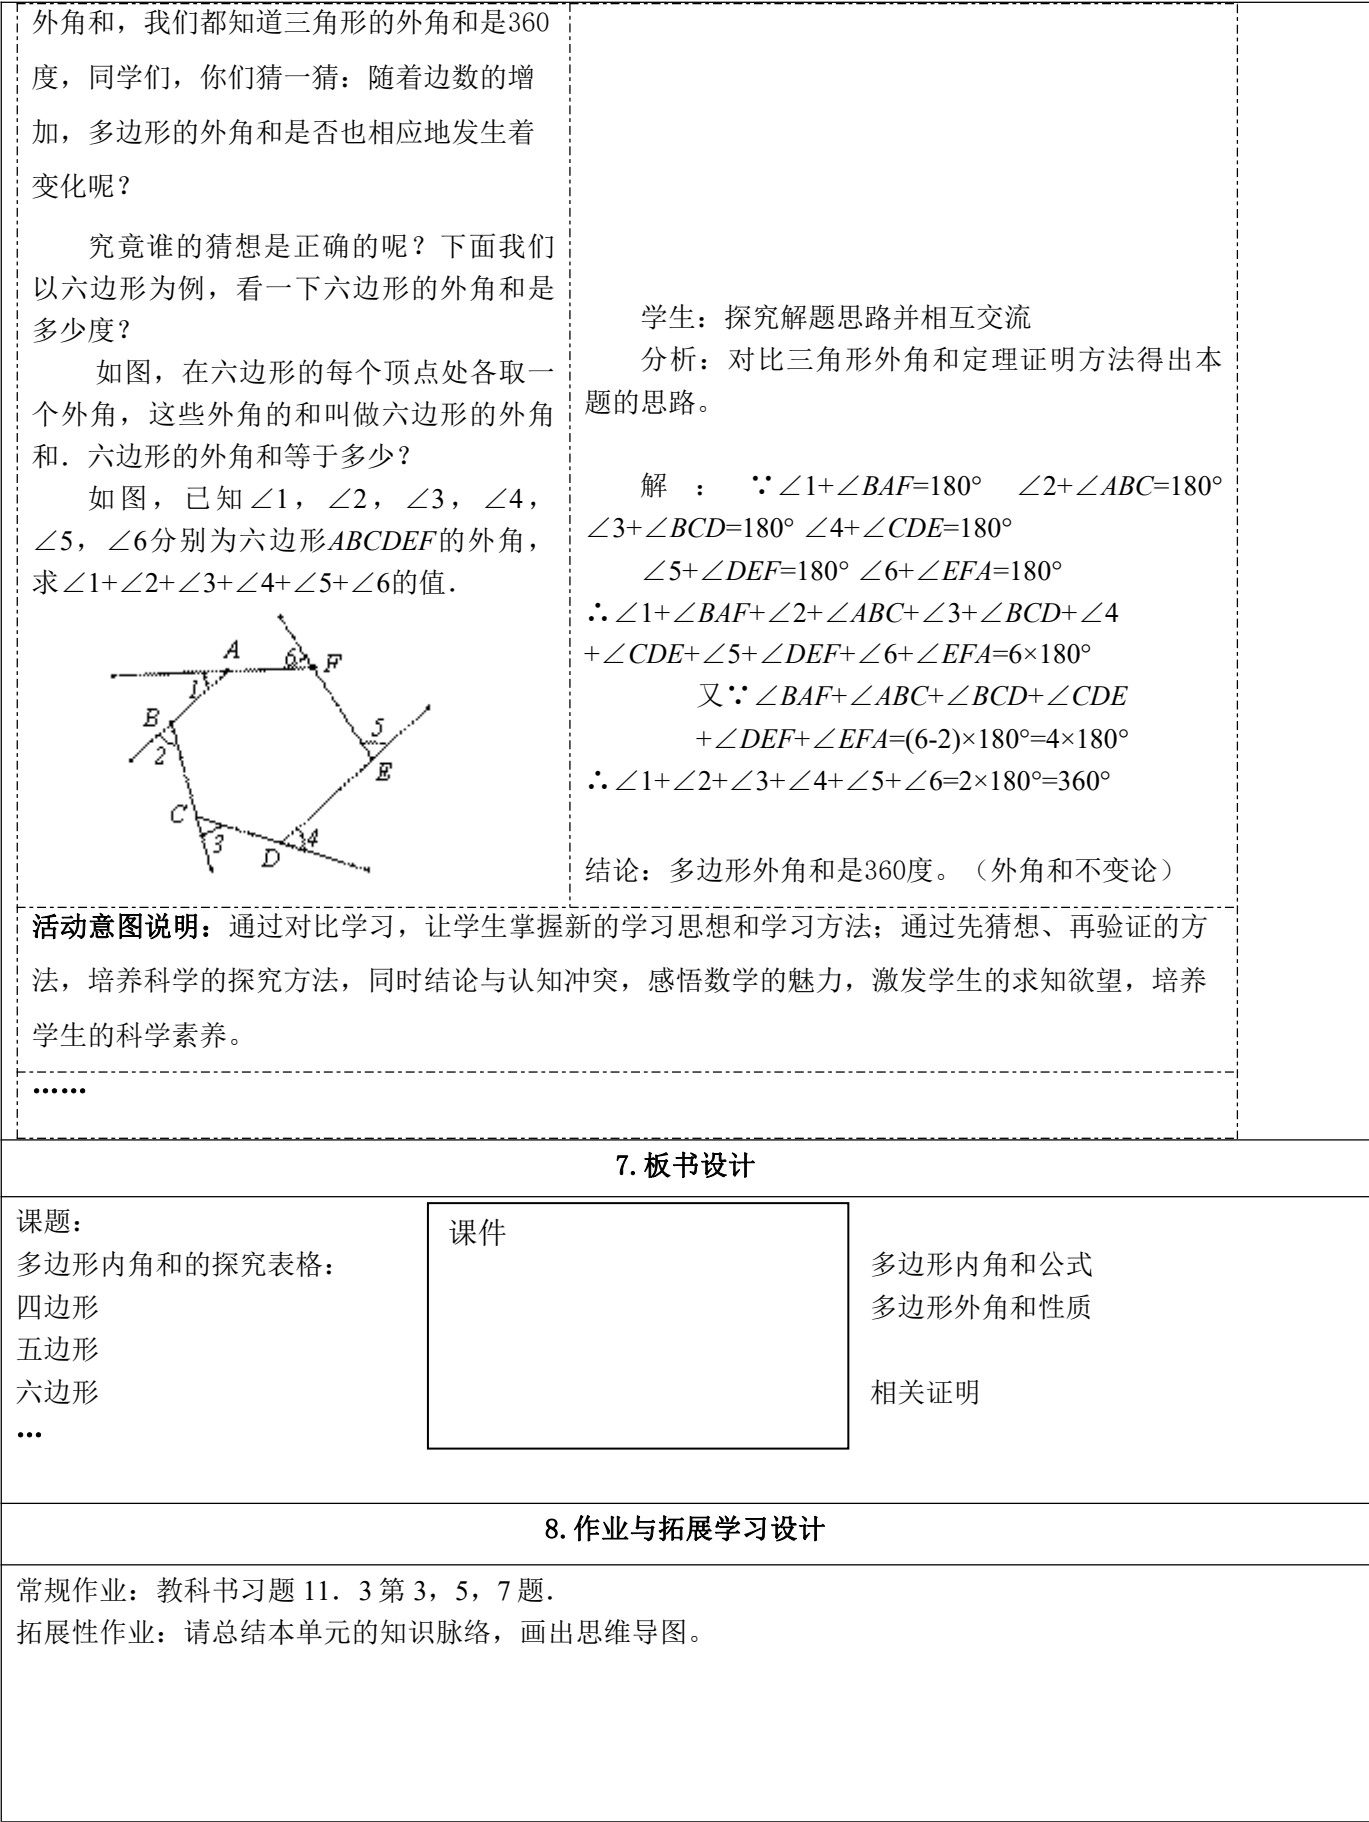 外角和，我们都知道三角形的外角和是360
度，同学们，你们猜一猜：随着边数的增
加，多边形的外角和是否也相应地发生着
变化呢？
究竟谁的猜想是正确的呢？下面我们
以六边形为例，看一下六边形的外角和是
多少度？
如图，在六边形的每个顶点处各取一
个外角，这些外角的和叫做六边形的外角
和．六边形的外角和等于多少？
如图，已知∠1，∠2，∠3，∠4，
∠5，∠6分别为六边形ABCDEF的外角，
求∠1+∠2+∠3+∠4+∠5+∠6的值．
A
6
F
1
B
2
5
E
C
3
D
4
学生：探究解题思路并相互交流
分析：对比三角形外角和定理证明方法得出本
题的思路。
解：∵∠1+∠BAF=180° ∠2+∠ABC=180°
∠3+∠BCD=180° ∠4+∠CDE=180°
∠5+∠DEF=180° ∠6+∠EFA=180°
∴∠1+∠BAF+∠2+∠ABC+∠3+∠BCD+∠4
+∠CDE+∠5+∠DEF+∠6+∠EFA=6×180°
又∵∠BAF+∠ABC+∠BCD+∠CDE
+∠DEF+∠EFA=(6-2)×180°=4×180°
∴∠1+∠2+∠3+∠4+∠5+∠6=2×180°=360°
结论：多边形外角和是360度。（外角和不变论）
活动意图说明：通过对比学习，让学生掌握新的学习思想和学习方法；通过先猜想、再验证的方
法，培养科学的探究方法，同时结论与认知冲突，感悟数学的魅力，激发学生的求知欲望，培养
学生的科学素养。
……
7.板书设计
课题：
多边形内角和的探究表格：
四边形
五边形
六边形
…
课件
多边形内角和公式
多边形外角和性质
相关证明
8.作业与拓展学习设计
常规作业：教科书习题 11．3 第 3，5，7 题．
拓展性作业：请总结本单元的知识脉络，画出思维导图。